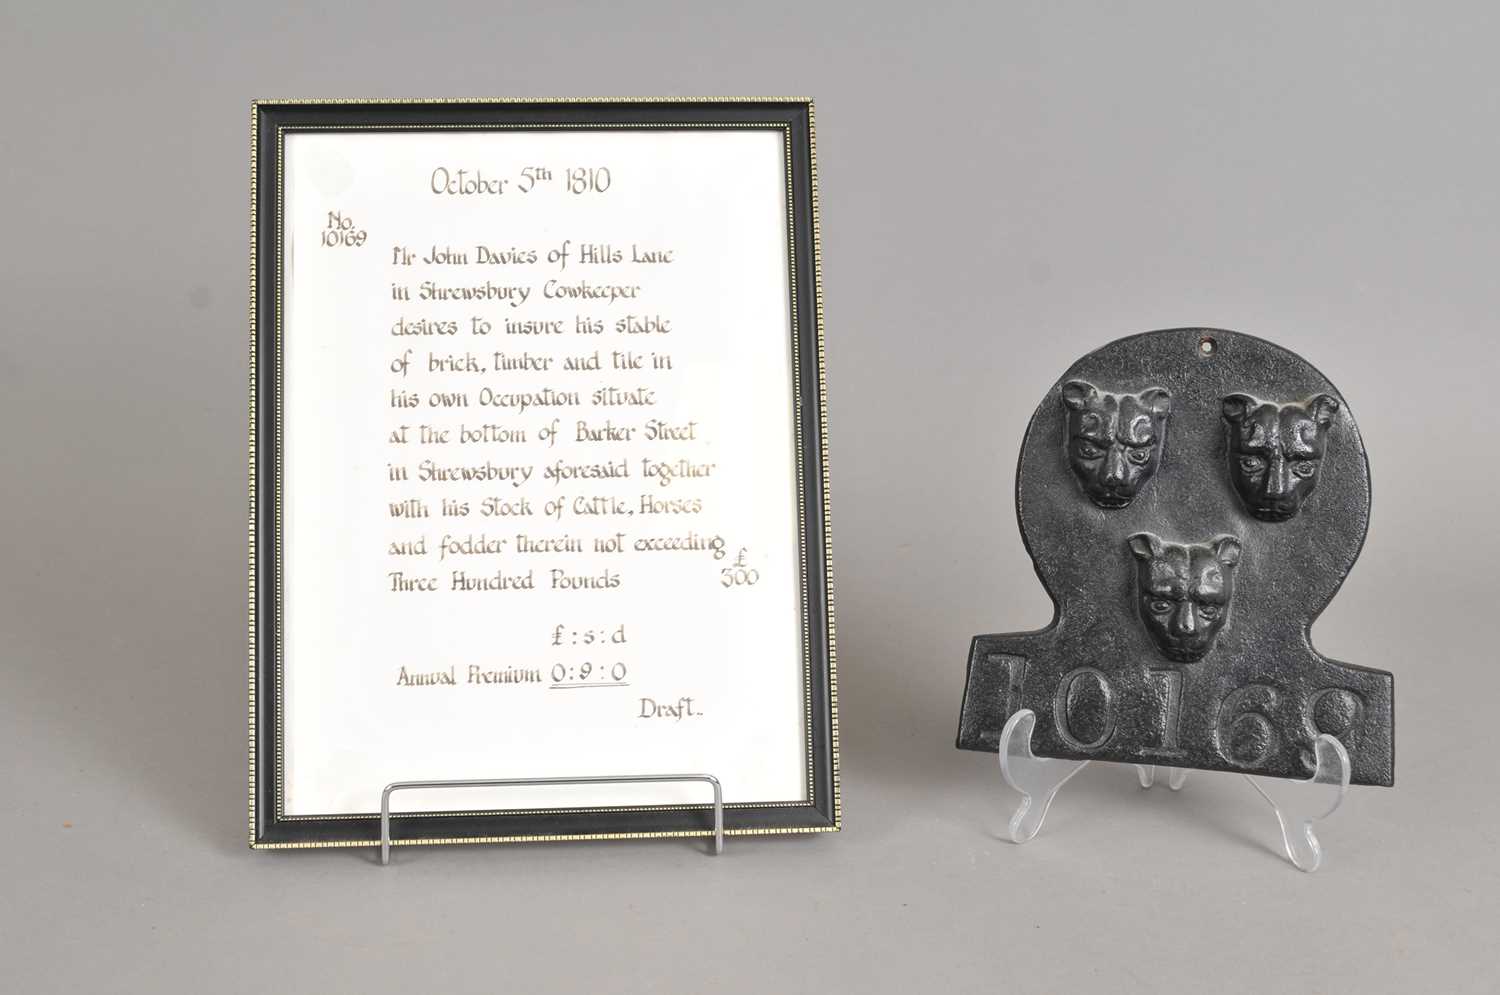 October 5th 1810
No.
10169
Mr John Davies of Hills Lane
in Shrewsbury Cowkeeper
desires to insure his stable
of brick, timber and tile in
his own Occupation situate
at the bottom of Barker Street
in Shrewsbury aforesaid together
with his Stock of Cattle, Horses
and fodder therein not exceeding
Three Hundred Pounds
£
300
£ : s : d
Annual Premium 0 : 9 : 0
Draft..
10169